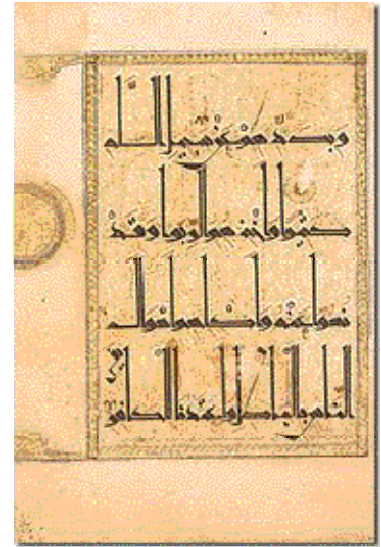 وبصدهم عن سبيل الله
كثيرا وأخذهم الربوا وقد
نهوا عنه وأكلهم أموال
الناس بالباطل وأعتدنا للكافرين